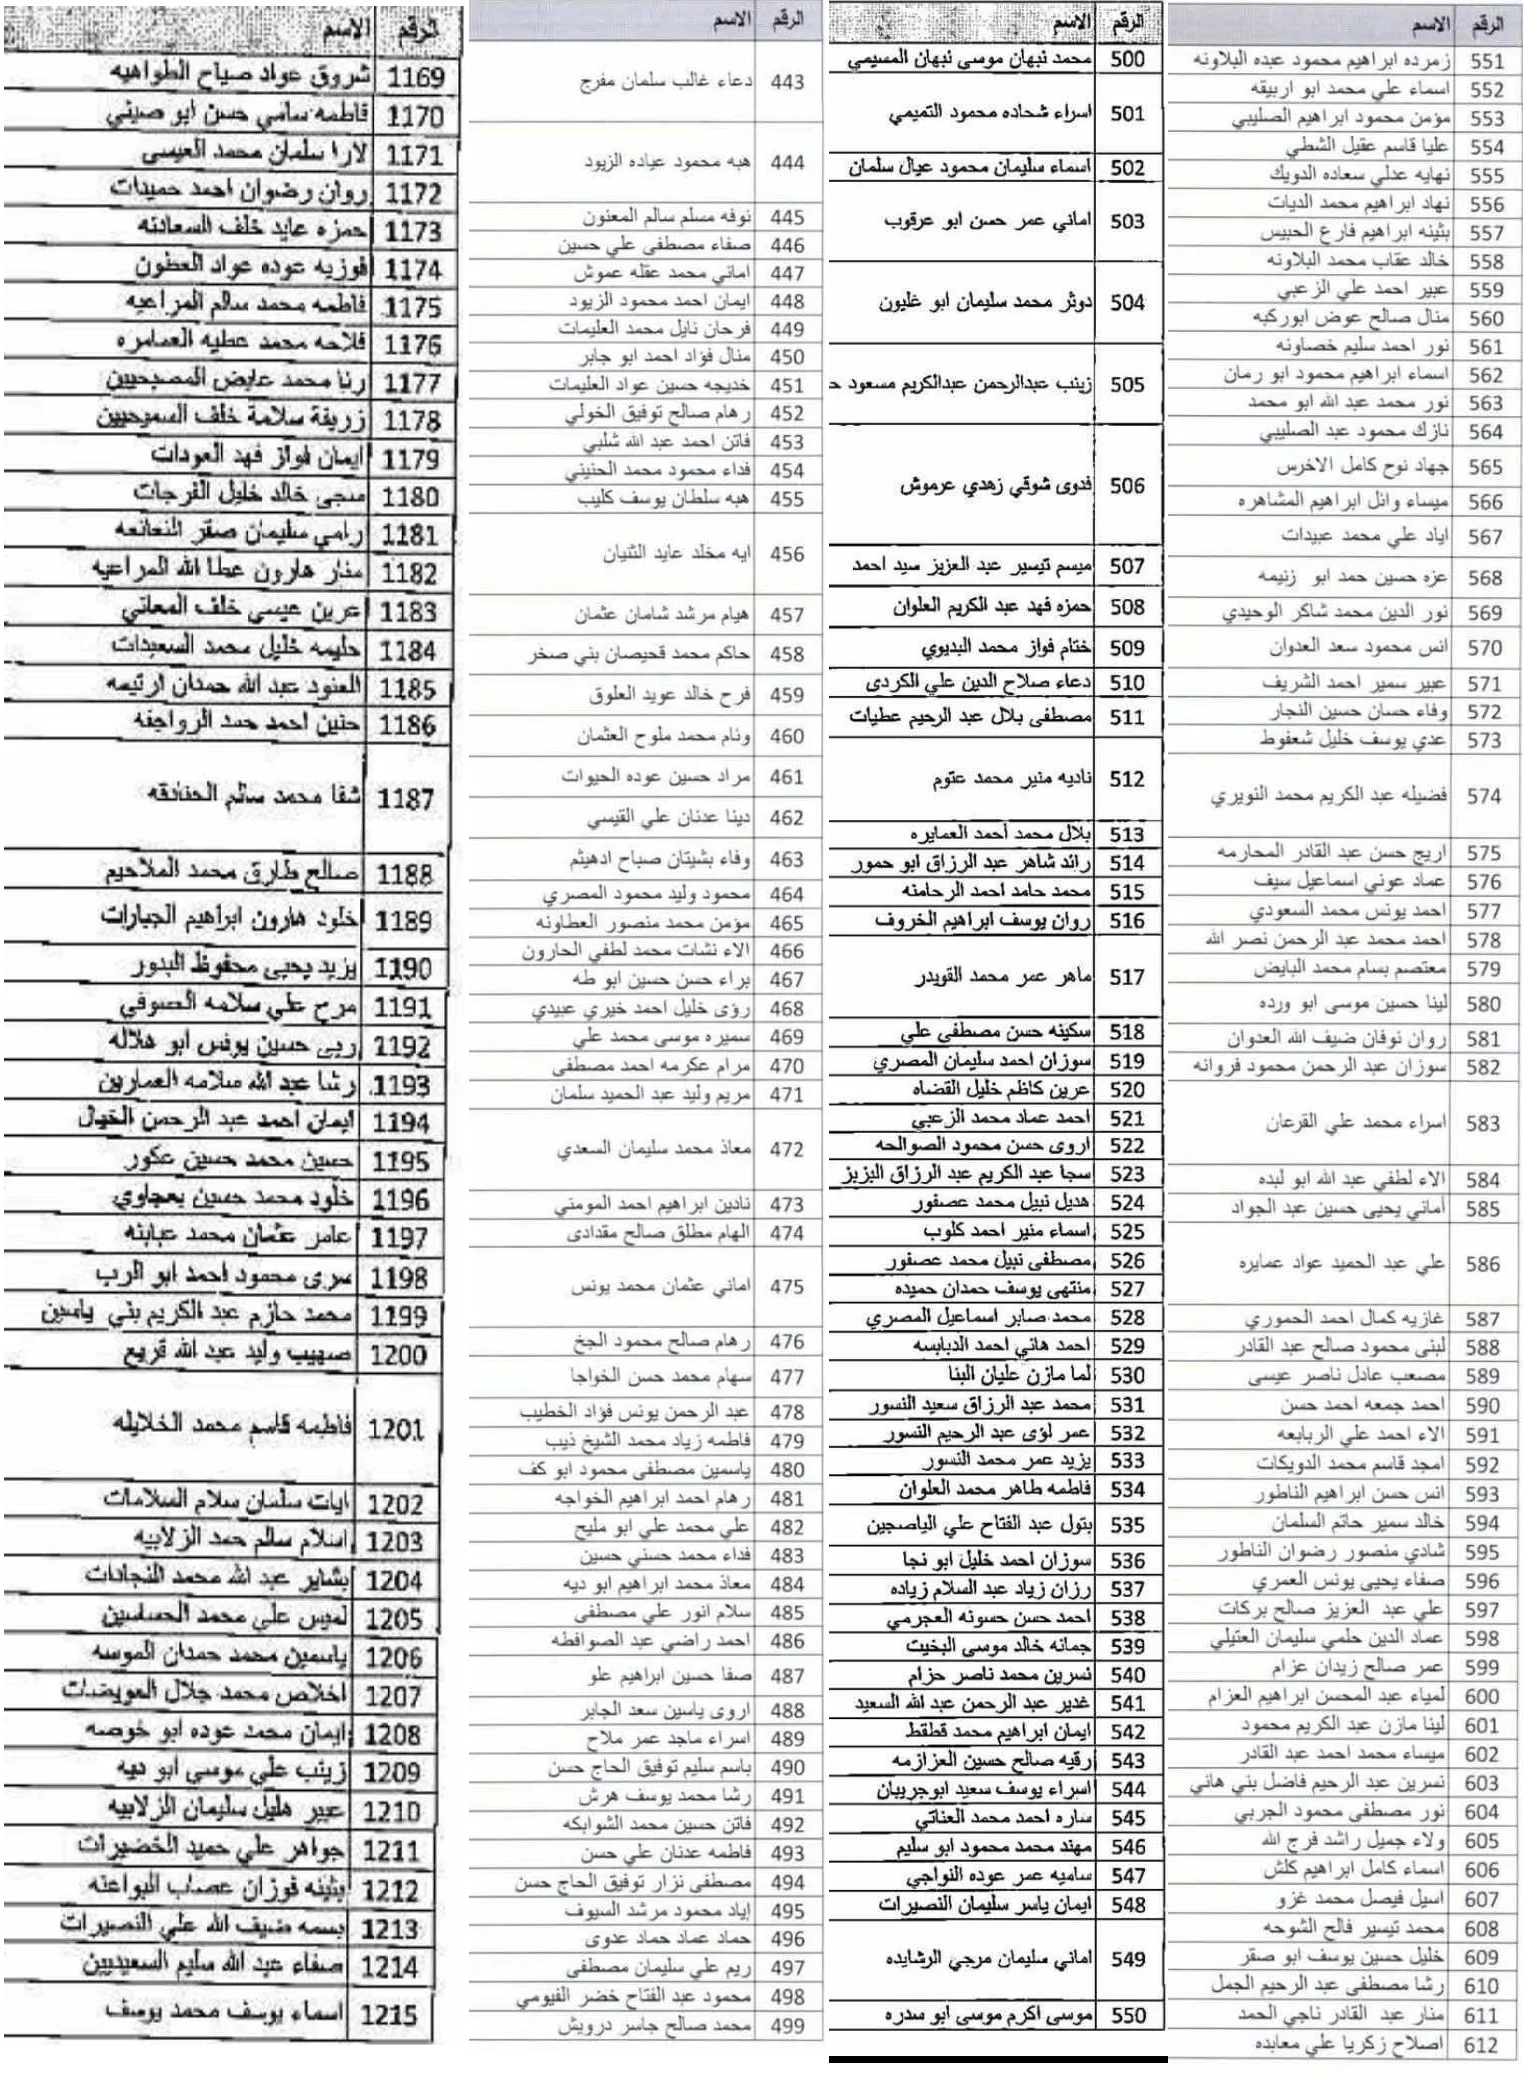 الرقم الاسم
551 زمرده ابراهيم محمود عبده البلاونه
552 اسماء علي محمد ابو اربيقه
553 مؤمن محمود ابراهيم الصليبي
554 عليا قاسم عقيل الشطي
555 نهايه عدلي سعاده الدويك
556 نهاد ابراهيم محمد الديات
557 بثينه ابراهيم فارع الحبيس
558 خالد عقاب محمد البلاونه
559 عبير احمد علي الزعبي
560 منال صالح عوض ابوركبه
561 نور احمد سليم خصاونه
562 اسماء ابراهيم محمود ابو رمان
563 نور محمد عبد الله ابو محمد
564 نازك محمود عبد الصليبي
565 جهاد نوح كامل الاخرس
566 ميساء وائل ابراهيم المشاهره
567 اياد علي محمد عبيدات
568 عزه حسين حمد ابو زنيمه
569 نور الدين محمد شاكر الوحيدي
570 انس محمود سعد العدوان
571 عبير سمير احمد الشريف
572 وفاء حسان حسين النجار
573 عدي يوسف خليل شعفوط
574 فضيله عبد الكريم محمد النويري
575 اريج حسن عبد القادر المحارمه
576 عماد عوني اسماعيل سيف
577 احمد يونس محمد السعودي
578 احمد محمد عبد الرحمن نصر الله
579 معتصم بسام محمد البايض
580 لينا حسين موسى ابو ورده
581 روان نوفان ضيف الله العدوان
582 سوزان عبد الرحمن محمود فروانه
583 اسراء محمد علي القرعان
584 الاء لطفي عبد الله ابو لبده
585 أماني يحيى حسين عبد الجواد
586 علي عبد الحميد عواد عمايره
587 غازيه كمال احمد الحموري
588 لبنى محمود صالح عبد القادر
589 مصعب عادل ناصر عيسى
590 احمد جمعه احمد حسن
591 الاء احمد علي الربابعه
592 امجد قاسم محمد الدويكات
593 انس حسن ابراهيم الناطور
594 خالد سمير حاتم السلمان
595 شادي منصور رضوان الناطور
596 صفاء يحيى يونس العمري
597 علي عبد العزيز صالح بركات
598 عماد الدين حلمي سليمان العتيلي
599 عمر صالح زيدان عزام
600 لمياء عبد المحسن ابراهيم العزام
601 لينا مازن عبد الكريم محمود
602 ميساء محمد احمد عبد القادر
603 نسرين عبد الرحيم فاضل بني هاني
604 نور مصطفى محمود الجربي
605 ولاء جميل راشد فرج الله
606 اسماء كامل ابراهيم كلش
607 اسيل فيصل محمد غزو
608 محمد تيسير فالح الشوحه
609 خليل حسين يوسف ابو صقر
610 رشا مصطفى عبد الرحيم الجمل
611 منار عبد القادر ناجي الحمد
612 اصلاح زكريا علي معابده
الرقم الاسم
500 محمد نبهان موسى نبهان المسيمي
501 اسراء شحاده محمود التميمي
502 اسماء سليمان محمود عيال سلمان
503 اماني عمر حسن ابو عرقوب
504 دوثر محمد سليمان ابو غليون
505 زينب عبدالرحمن عبدالكريم مسعود ح
506 فدوى شوقي زهدي عرموش
507 ميسم تيسير عبد العزيز سيد احمد
508 حمزه فهد عبد الكريم العلوان
509 ختام فواز محمد البديوي
510 دعاء صلاح الدين علي الكردى
511 مصطفى بلال عبد الرحيم عطيات
512 ناديه منير محمد عتوم
513 بلال محمد أحمد العمايره
514 رائد شاهر عبد الرزاق ابو حمور
515 محمد حامد احمد الرحامنه
516 روان يوسف ابراهيم الخروف
517 ماهر عمر محمد القويدر
518 سكينه حسن مصطفى علي
519 سوزان احمد سليمان المصري
520 عرين كاظم خليل القضاه
521 احمد عماد محمد الزعبي
522 اروى حسن محمود الصوالحه
523 سجا عبد الكريم عبد الرزاق البزبز
524 هديل نبيل محمد عصفور
525 اسماء منير احمد كلوب
526 مصطفى نبيل محمد عصفور
527 منتهى يوسف حمدان حميده
528 محمد صابر اسماعيل المصري
529 احمد هاني احمد الدبابسه
530 لما مازن عليان البنا
531 محمد عبد الرزاق سعيد النسور
532 عمر لؤى عبد الرحيم النسور
533 يزيد عمر محمد النسور
534 فاطمه طاهر محمد العلوان
535 بتول عبد الفتاح علي الياصجين
536 سوزان احمد خليل ابو نجا
537 رزان زياد عبد السلام زياده
538 احمد حسن حسونه العجرمي
539 جمانه خالد موسى البخيت
540 نسرين محمد ناصر حزام
541 غدير عبد الرحمن عبد الله السعيد
542 ايمان ابراهيم محمد قطقط
543 رقيه صالح حسين العزازمه
544 اسراء يوسف سعيد ابوجريبان
545 ساره احمد محمد العناتي
546 مهند محمد محمود ابو سليم
547 ساميه عمر عوده النواجي
548 ايمان ياسر سليمان النصيرات
549 اماني سليمان مرجي الرشايده
550 موسى اكرم موسى ابو سدره
الرقم الاسم
443 دعاء غالب سلمان مفرج
444 هبه محمود عياده الزيود
445 نوفه مسلم سالم المعنون
446 صفاء مصطفى علي حسين
447 اماني محمد عقله عموش
448 ايمان احمد محمود الزيود
449 فرحان نايل محمد العليمات
450 منال فؤاد احمد ابو جابر
451 خديجه حسين عواد العليمات
452 رهام صالح توفيق الخولي
453 فاتن احمد عبد الله شلبي
454 فداء محمود محمد الحنيني
455 هبه سلطان يوسف كليب
456 ايه مخلد عايد الثنيان
457 هيام مرشد شامان عثمان
458 حاكم محمد قحيصان بني صخر
459 فرح خالد عويد العلوق
460 ونام محمد ملوح العثمان
461 مراد حسين عوده الحيوات
462 دينا عدنان علي القيسي
463 وفاء بشيتان صباح ادهيثم
464 محمود وليد محمود المصري
465 مؤمن محمد منصور العطاونه
466 الاء نشات محمد لطفي الحارون
467 براء حسن حسين ابو طه
468 رؤى خليل احمد خيري عبيدي
469 سميره موسى محمد علي
470 مرام عكرمه احمد مصطفى
471 مريم وليد عبد الحميد سلمان
472 معاذ محمد سليمان السعدي
473 نادين ابراهيم احمد المومني
474 الهام مطلق صالح مقدادى
475 اماني عثمان محمد يونس
476 رهام صالح محمود الجخ
477 سهام محمد حسن الخواجا
478 عبد الرحمن يونس فؤاد الخطيب
479 فاطمه زياد محمد الشيخ ذيب
480 ياسمين مصطفى محمود ابو كف
481 رهام احمد ابراهيم الخواجه
482 علي محمد علي ابو مليح
483 فداء محمد حسني حسين
484 معاذ محمد ابراهيم ابو ديه
485 سلام انور علي مصطفى
486 احمد راضي عبد الصوافطه
487 صفا حسين ابراهيم علو
488 اروى ياسين سعد الجابر
489 اسراء ماجد عمر ملاح
490 باسم سليم توفيق الحاج حسن
491 رشا محمد يوسف هرش
492 فاتن حسين محمد الشوابكه
493 فاطمه عدنان علي حسن
494 مصطفى نزار توفيق الحاج حسن
495 إياد محمود مرشد السيوف
496 حماد عماد حماد عدوى
497 ريم علي سليمان مصطفى
498 محمود عبد الفتاح خضر الفيومي
499 محمد صالح جاسر درويش
الرقم الاسم
1169 شروق عواد صياح الطواهيه
1170 فاطمه سامي حسن ابو صيني
1171 لارا سلمان محمد العيسى
1172 روان رضوان احمد حميدات
1173 حمزه عايد خلف السعادنه
1174 فوزيه عوده عواد العطون
1175 فاطمه محمد سالم المراعيه
1176 فلاحه محمد عطيه العمامره
1177 رنا محمد عايض المصبحيين
1178 زريفة سلامة خلف السميحيين
1179 ايمان فواز فهد العودات
1180 سجى خالد خليل الفرجات
1181 رامي سليمان صقر النعانعه
1182 منار هارون عطا الله المراعيه
1183 عرين عيسى خلف المعاني
1184 حليمه خليل محمد السعيدات
1185 العنود عبد الله حمدان ارتيمه
1186 حنين احمد حمد الرواجفه
1187 شفا محمد سالم الحنادقه
1188 صالح طارق محمد الملاحيم
1189 خلود هارون ابراهيم الجبارات
1190 يزيد يحيى محفوظ البدور
1191 مرح علي سلامه الصوفي
1192 ربى حسين يونس ابو هلاله
1193 رشا عبد الله سلامه العمارين
1194 ايمان احمد عبد الرحمن الخيال
1195 حسين محمد حسين عكور
1196 خلود محمد حسين يعجاوي
1197 عامر عثمان محمد عبابنه
1198 سرى محمود احمد ابو الرب
1199 محمد حازم عبد الكريم بني ياسين
1200 صهيب وليد عبد الله قريع
1201 فاطمه قاسم محمد الخلايله
1202 ايات سلمان سلام السلامات
1203 اسلام سالم حمد الزلابيه
1204 بشاير عبد الله محمد النجادات
1205 لميس علي محمد الحساسين
1206 ياسمين محمد حمدان الموسه
1207 اخلاص محمد جلال العويضات
1208 ايمان محمد عوده ابو خوصه
1209 زينب علي موسى ابو ديه
1210 عبير هليل سليمان الزلابيه
1211 جواهر علي حميد الخضيرات
1212 بثينه فوزان عصاب البواعنه
1213 بسمه ضيف الله علي النصيرات
1214 صفاء عبد الله سليم السعيديين
1215 اسماء يوسف محمد يوسف